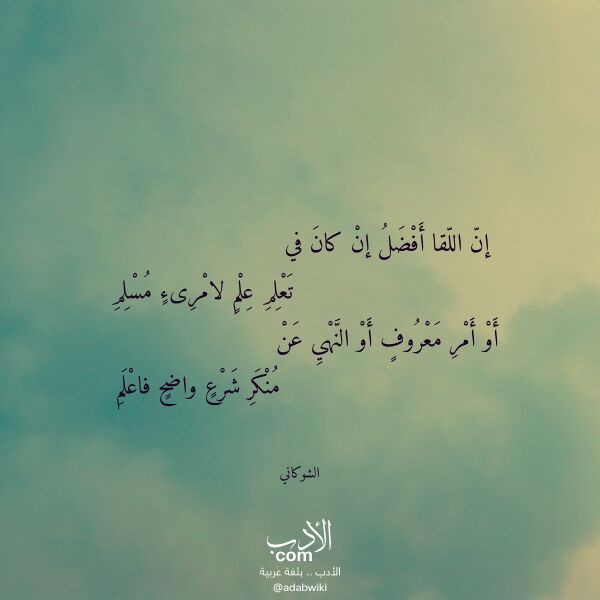 إنّ اللّقا أَفْضَلُ إنْ كانَ في
تَعْلِمِ عِلْمٍ لامْرِىءٍ مُسْلِمِ
أَوْ أَمْرِ مَعْرُوفٍ أَوْ النَّهْيِ عَنْ
مُنْكَرِ شَرْعٍ واضحٍ فاعْلَمِ
الشوكاني
الأدب
com
الأدب .. بلغة عربية
@adabwiki